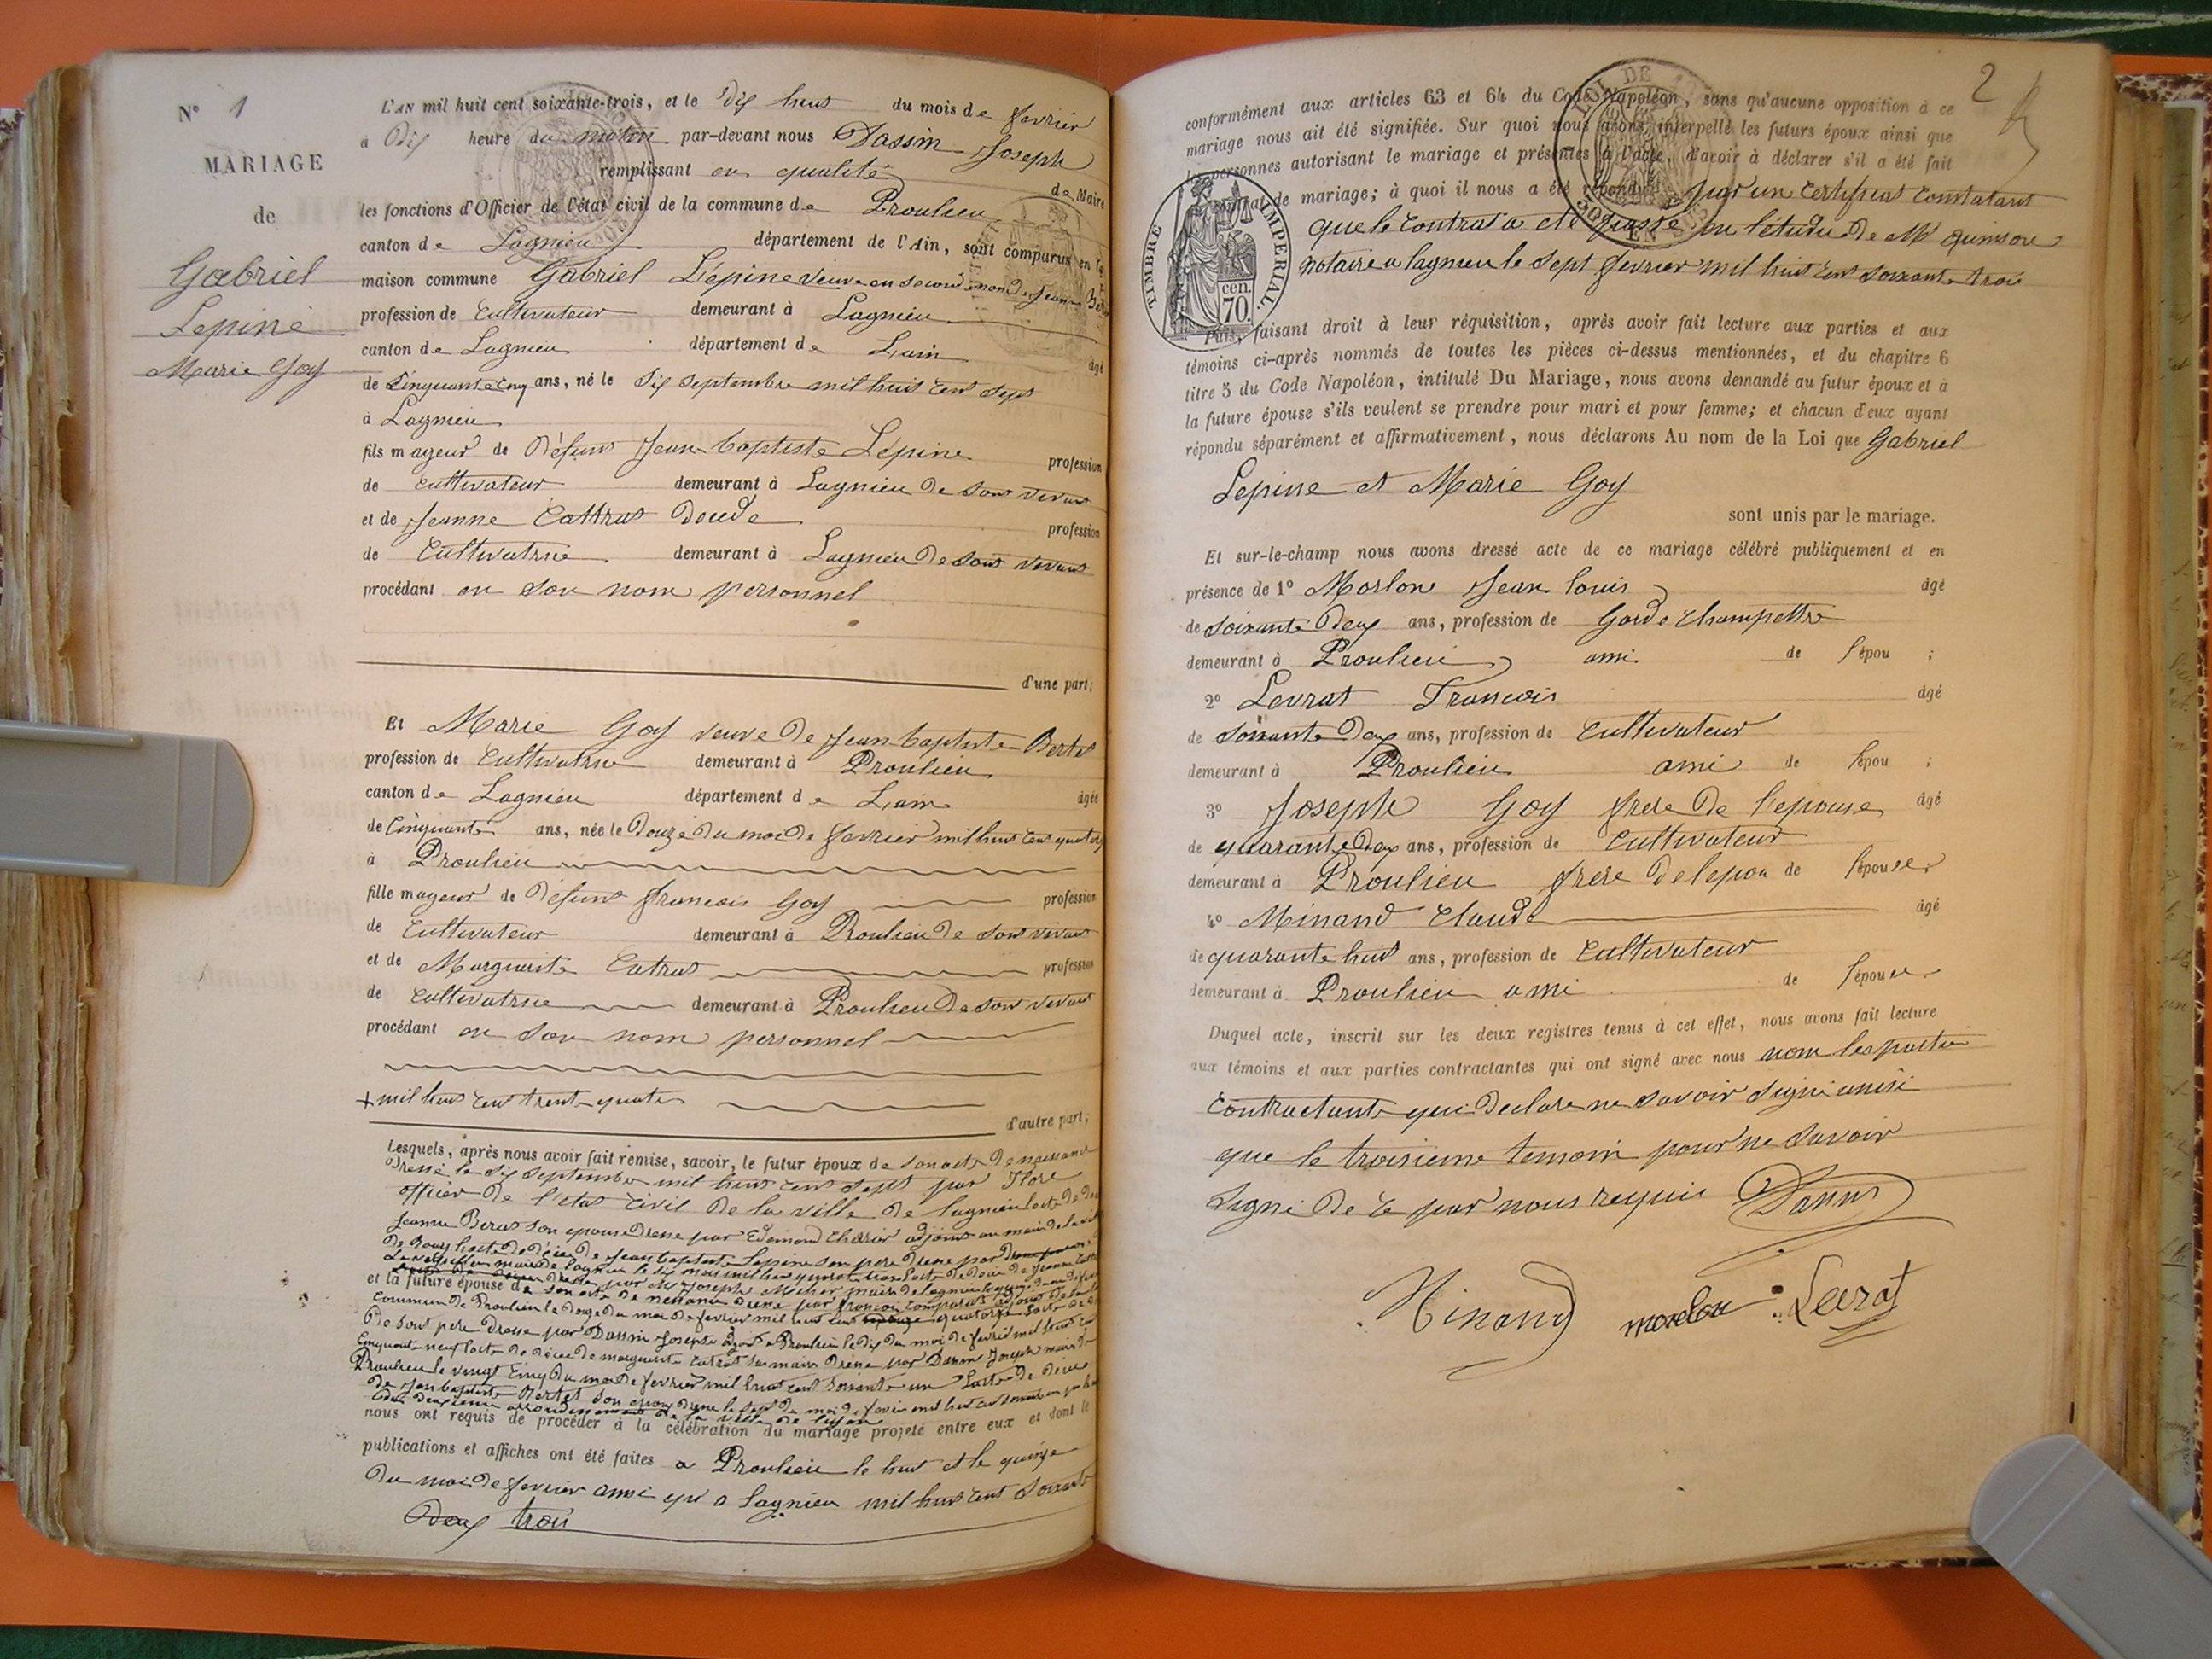 N° 1
MARIAGE
de
Gabriel
Lepine
Marie Goy
L'AN mil huit cent soixante-trois, et le Dix huit du mois de fevrier
à Dix heure du matin par-devant nous Dassin Joseph
remplissant en qualité de Maire
les fonctions d'Officier de l'état civil de la commune de Proulieu
canton de Lagnieu département de l'Ain, sont comparus en la
maison commune Gabriel Lepine veuve en second nom de Jeanne
profession de Cultivateur demeurant à Lagnieu
canton de Lagnieu département de L'ain âgé
de Cinquante Cinq ans, né le Dix septembre mil huit cent sept
à Lagnieu
fils mageur de Défunt Jean Baptiste Lépine profession
de Cultivateur demeurant à Lagnieu de sont vivant
et de Jeanne Cattrat profession
de Cultivatrice demeurant à Lagnieu de sont vivant
procédant en son nom personnel
d'une part;
Et Marie Goy veuve de Jean Baptiste Bertet
profession de Cultivatrice demeurant à Proulieu
canton de Lagnieu département de L'ain âgée
de Cinquante ans, née le Douze du moi de fevrier mil huit cent
à Proulieu
fille mageur de Défunt francois Goy profession
de Cultivateur demeurant à Proulieu de sont vivant
et de Marguerite Catrat profession
de Cultivatrice demeurant à Proulieu de sont vivant
procédant en son nom personnel
+ mil huit cent trente quatre
d'autre part;
Lesquels, après nous avoir fait remise, savoir, le futur époux de son acte de naissance
Dressé le dix septembre mil huit cent sept par
officier de l'etat civil de la ville de lagnieu
Jeanne son epouse Dressé par Edmond adjoint au maire de la
Jean baptiste Lepine son pere
et la future épouse de son acte de
Commune de Proulieu le douze du moi de fevrier mil huit cent quatorze
De sont pere Dresse par Dassin Joseph a Proulieu le dix du moi de fevrié mil huit
Cinquante neuf lacte de décé de marguerite Catrat sa mere par Dassin Joseph maire de
Proulieu le vingt Cinq du moi de fevrier mil huit cent soixante un lacte de
de Jean baptiste Bertet son epoux le sept du moi de
deuxieme arrondissement de la ville de
nous ont requis de procéder à la célébration du mariage projeté entre eux et dont les
publications et affiches ont été faites a Proulieu le huit et le quinze
Du moi de fevrier ansi qu'a lagnieu mil huit cent soixante
Deux trois
2
conformément aux articles 63 et 64 du Code Napoléon, sans qu'aucune opposition à ce
mariage nous ait été signifiée. Sur quoi nous avons interpellé les futurs époux ainsi que
les personnes autorisant le mariage et présentes à l'acte, d'avoir à déclarer s'il a été fait
contrat de mariage; à quoi il nous a été répondu par un certificat constatant
que le contrat a eté passé en l'étude de Mr quinson
notaire a lagnieu le sept fevrier mil huit cent soixante trois
TIMBRE IMPERIAL
70 cen.
Puis, faisant droit à leur réquisition, après avoir fait lecture aux parties et aux
témoins ci-après nommés de toutes les pièces ci-dessus mentionnées, et du chapitre 6
titre 5 du Code Napoléon, intitulé Du Mariage, nous avons demandé au futur époux et à
la future épouse s'ils veulent se prendre pour mari et pour femme; et chacun d'eux ayant
répondu séparément et affirmativement, nous déclarons Au nom de la Loi que Gabriel
Lepine et Marie Goy
sont unis par le mariage.
Et sur-le-champ nous avons dressé acte de ce mariage célébré publiquement et en
présence de 1° Morlon Jean louis âgé
de soixante Deux ans, profession de Garde Champettre
demeurant à Proulieu ami de l'épou ;
2° Levrat Francois âgé
de soixante Deux ans, profession de Cultivateur
demeurant à Proulieu ami de l'épou ;
3° Joseph Goy frere de l'epouse âgé
de quarante Deux ans, profession de Cultivateur
demeurant à Proulieu frere de lepou de l'épouse
4° Minand Claude âgé
de quarante huit ans, profession de Cultivateur
demeurant à Proulieu ami de l'épouse
Duquel acte, inscrit sur les deux registres tenus à cet effet, nous avons fait lecture
aux témoins et aux parties contractantes qui ont signé avec nous non les partie
Contractante qui Declare ne savoir signé ansi
que le troisieme temoin pour ne savoir
signé De ce par nous requis Dassin
Minand morlon Levrat